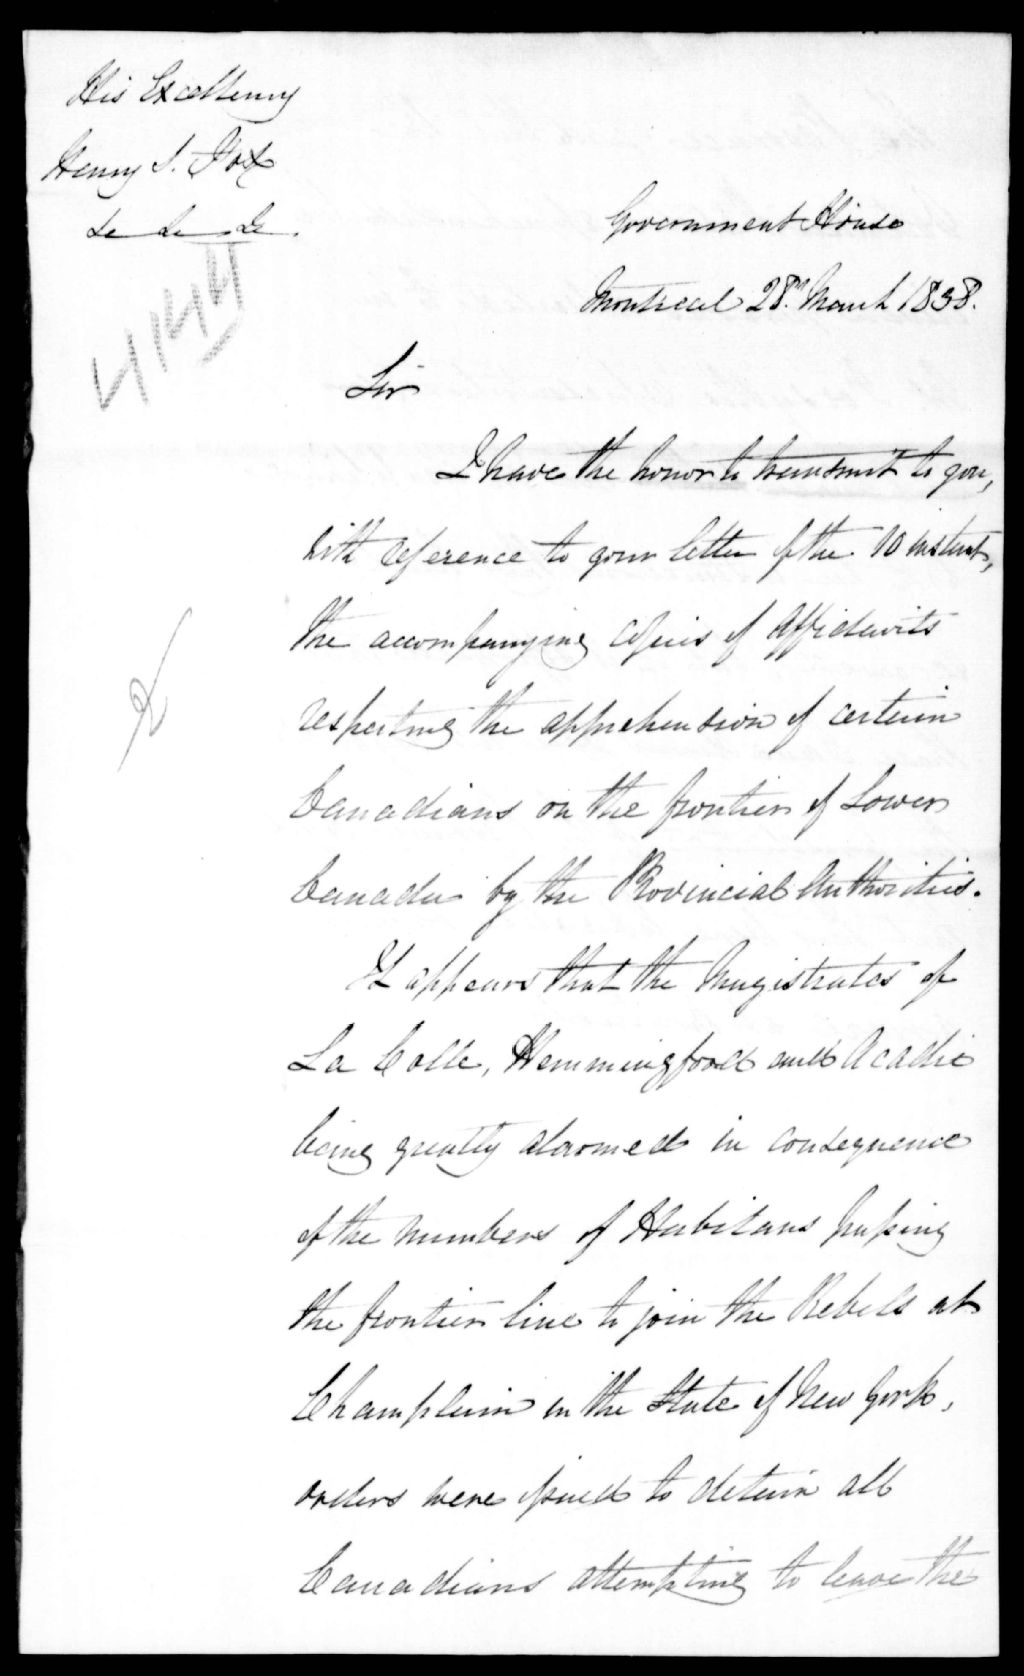 His Excellency
Henry S. Fox
&c &c &c.
4144
Government House
Montreal 28th. March 1838.
Sir
I have the honor to transmit to you,
with reference to your letter of the 10 instant,
the accompanying copies of Affidavits
respecting the apprehension of certain
Canadians on the frontier of Lower
Canada by the Provincial Authorities.
It appears that the Magistrates of
La Colle, Hemmingford and Acadie
being greatly alarmed in consequence
of the numbers of Habitans passing
the frontier line to join the Rebels at
Champlain in the State of New York,
orders were issued to detain all
Canadians attempting to leave the